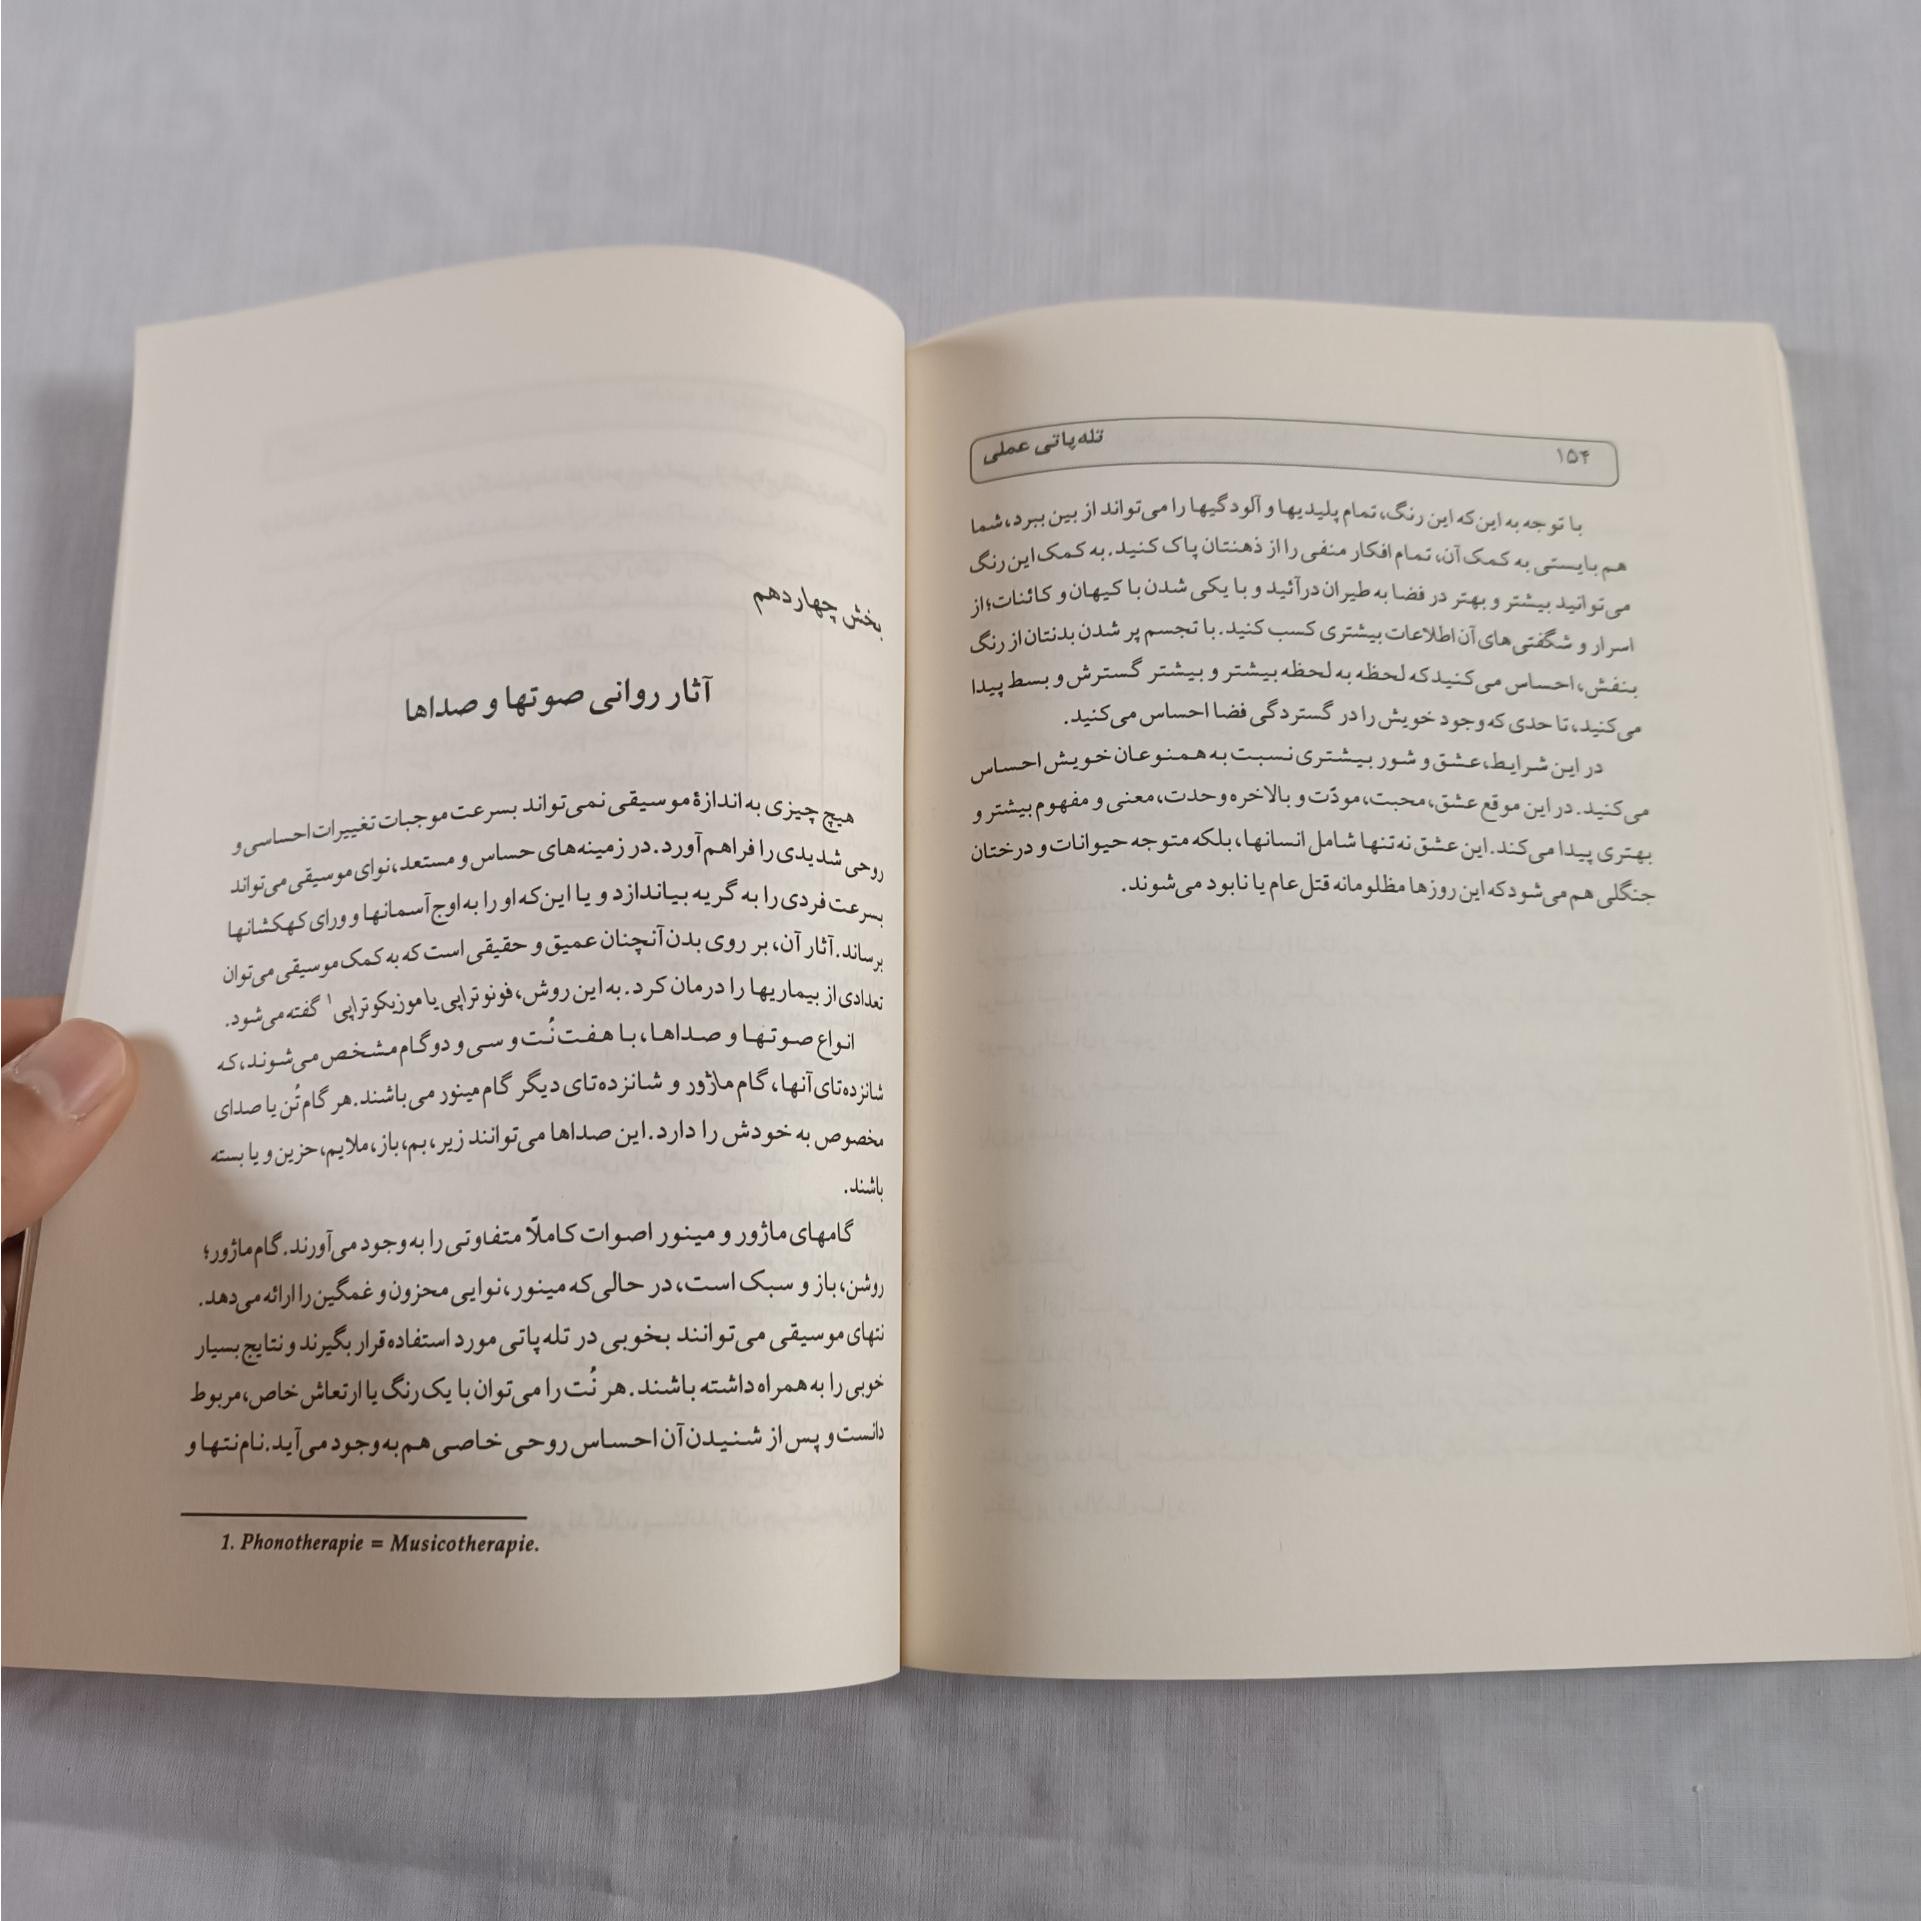 ۱۵۴
تله‌پاتی عملی
با توجه به این‌که این رنگ، تمام پلیدیها و آلودگیها را می‌تواند از بین ببرد، شما
هم بایستی به کمک آن، تمام افکار منفی را از ذهنتان پاک کنید. به کمک این رنگ
می‌توانید بیشتر و بهتر در فضا به طیران درآئید و با یکی شدن با کیهان و کائنات؛ از
اسرار و شگفتی‌های آن اطلاعات بیشتری کسب کنید. با تجسم پر شدن بدنتان از رنگ
بنفش، احساس می‌کنید که لحظه به لحظه بیشتر و بیشتر گسترش و بسط پیدا
می‌کنید، تا حدی که وجود خویش را در گستردگی فضا احساس می‌کنید.
در این شرایط، عشق و شور بیشتری نسبت به همنوعان خویش احساس
می‌کنید. در این موقع عشق، محبت، مودّت و بالاخره وحدت، معنی و مفهوم بیشتر و
بهتری پیدا می‌کند. این عشق نه‌تنها شامل انسانها، بلکه متوجه حیوانات و درختان
جنگلی هم می‌شود که این روزها مظلومانه قتل عام یا نابود می‌شوند.
بخش چهاردهم
آثار روانی صوتها و صداها
هیچ چیزی به اندازهٔ موسیقی نمی‌تواند بسرعت موجبات تغییرات احساسی و
روحی شدیدی را فراهم آورد. در زمینه‌های حساس و مستعد، نوای موسیقی می‌تواند
بسرعت فردی را به گریه بیاندازد و یا این‌که او را به اوج آسمانها و ورای کهکشانها
برساند. آثار آن، بر روی بدن آنچنان عمیق و حقیقی است که به کمک موسیقی می‌توان
تعدادی از بیماریها را درمان کرد. به این روش، فونوتراپی یا موزیکوتراپی۱ گفته می‌شود.
انواع صوتها و صداها، با هفت نُت و سی و دو گام مشخص می‌شوند، که
شانزده‌تای آنها، گام ماژور و شانزده‌تای دیگر گام مینور می‌باشند. هر گام تُن یا صدای
مخصوص به خودش را دارد. این صداها می‌توانند زیر، بم، باز، ملایم، حزین و یا بسته
باشند.
گامهای ماژور و مینور اصوات کاملاً متفاوتی را به وجود می‌آورند. گام ماژور؛
روشن، باز و سبک است، در حالی‌که مینور، نوایی محزون و غمگین را ارائه می‌دهد.
نتهای موسیقی می‌توانند بخوبی در تله‌پاتی مورد استفاده قرار بگیرند و نتایج بسیار
خوبی را به همراه داشته باشند. هر نُت را می‌توان با یک رنگ یا ارتعاش خاص، مربوط
دانست و پس از شنیدن آن احساس روحی خاصی هم به وجود می‌آید. نام نتها و
1. Phonotherapie = Musicotherapie.